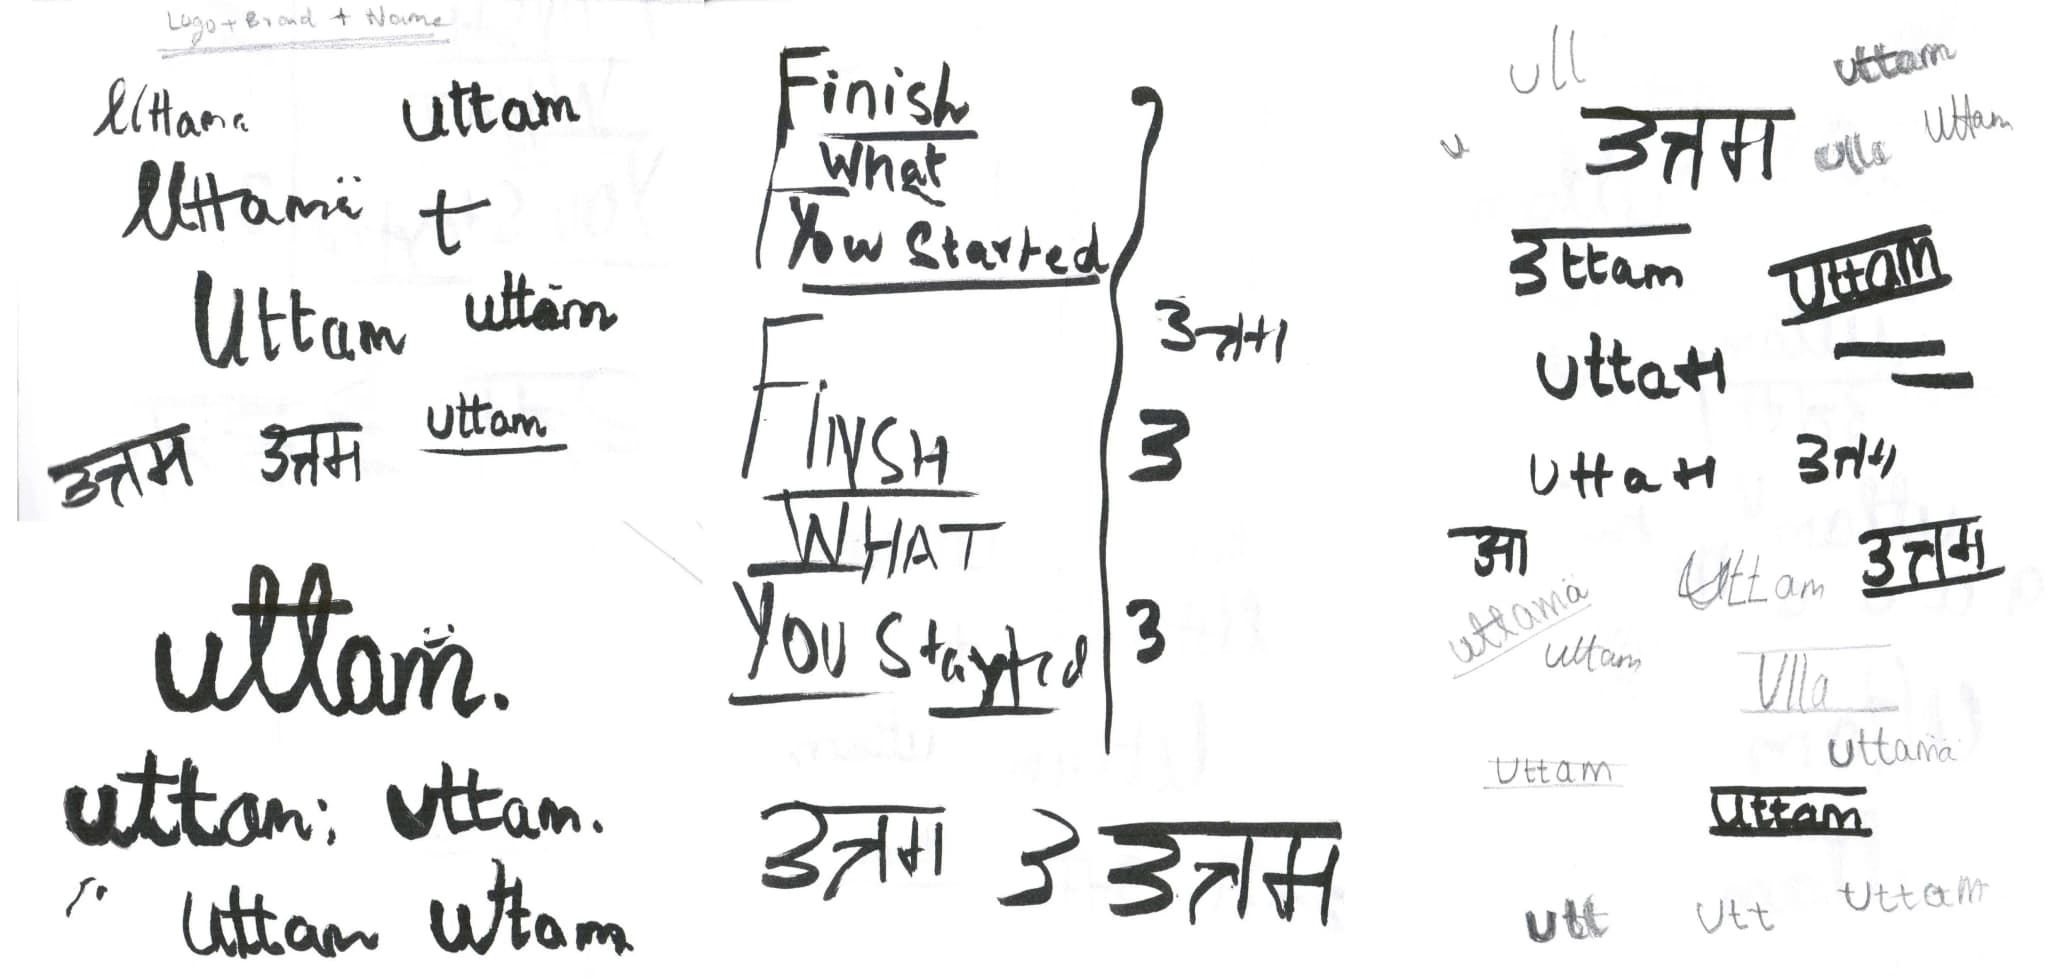 Logo + Brand + Name
Uttama
uttam
Uttamä
t
Uttam
uttäm
उत्तम
उत्तम
uttam
uttam̈.
uttam:
uttam.
Uttam
uttam
Finish
What
You Started
FINSH
WHAT
YOU Started
उत्तम
उ
उ
उत्तम
उ
उत्तम
ull
uttam
u
उत्तम
Uttam
उttam
Uttam
uttaम
uttaम
उत्तम
आ
Uttam
उत्तम
uttamä
uttam
Ulla
Uttam
uttamä
Uttam
utt
Utt
Uttam